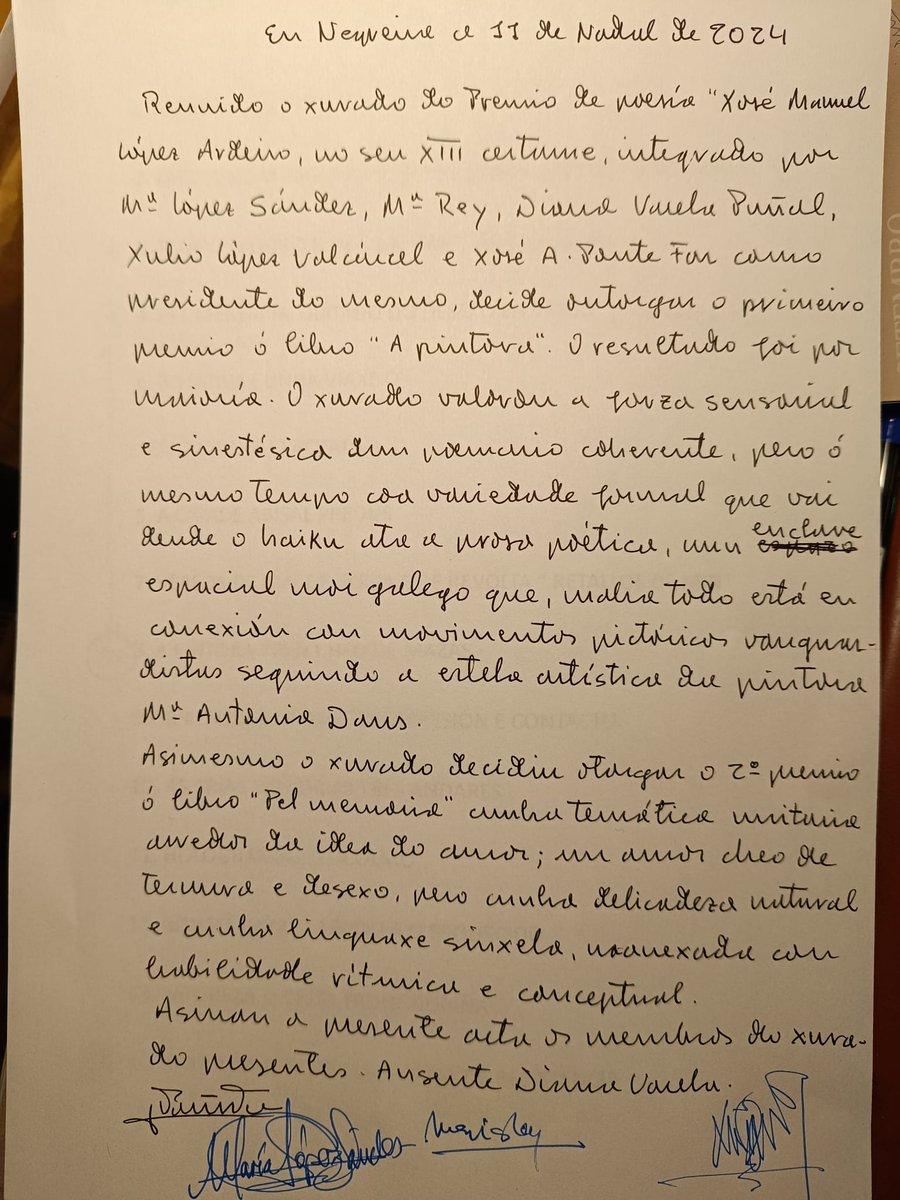 En Negreira a 11 de Nadal de 2024
Reunido o xurado do Premio de poesía "Xosé Manuel
López Ardeiro, no seu XIII certame, integrado por
Mª López Sández, Mª Rey, Diana Varela Puñal,
Xulio López Valcárcel e Xosé A. Ponte Far como
presidente do mesmo, decide outorgar o primeiro
premio ó libro "A pintora". O resultado foi por
maioría. O xurado valorou a forza sensorial
e sinestésica dun poemario coherente, pero ó
mesmo tempo coa variedade formal que vai
dende o haiku ata a prosa poética, nun enclave
espacial moi galego que, malia todo está en
conexión con movimentos pictóricos vanguar-
distas seguindo a estela artística da pintora
Mª Antonia Dans.
Asimesmo o xurado decidiu otorgar o 2º premio
ó libro "Pel memoria" cunha temática unitaria
arredor da idea do amor; un amor cheo de
tenrura e desexo, pero cunha delicadeza natural
e cunha linguaxe sinxela, manexada con
habilidade rítmica e conceptual.
Asinan a presente acta os membros do xura-
do presentes. Ausente Diana Varela.
María López Sández